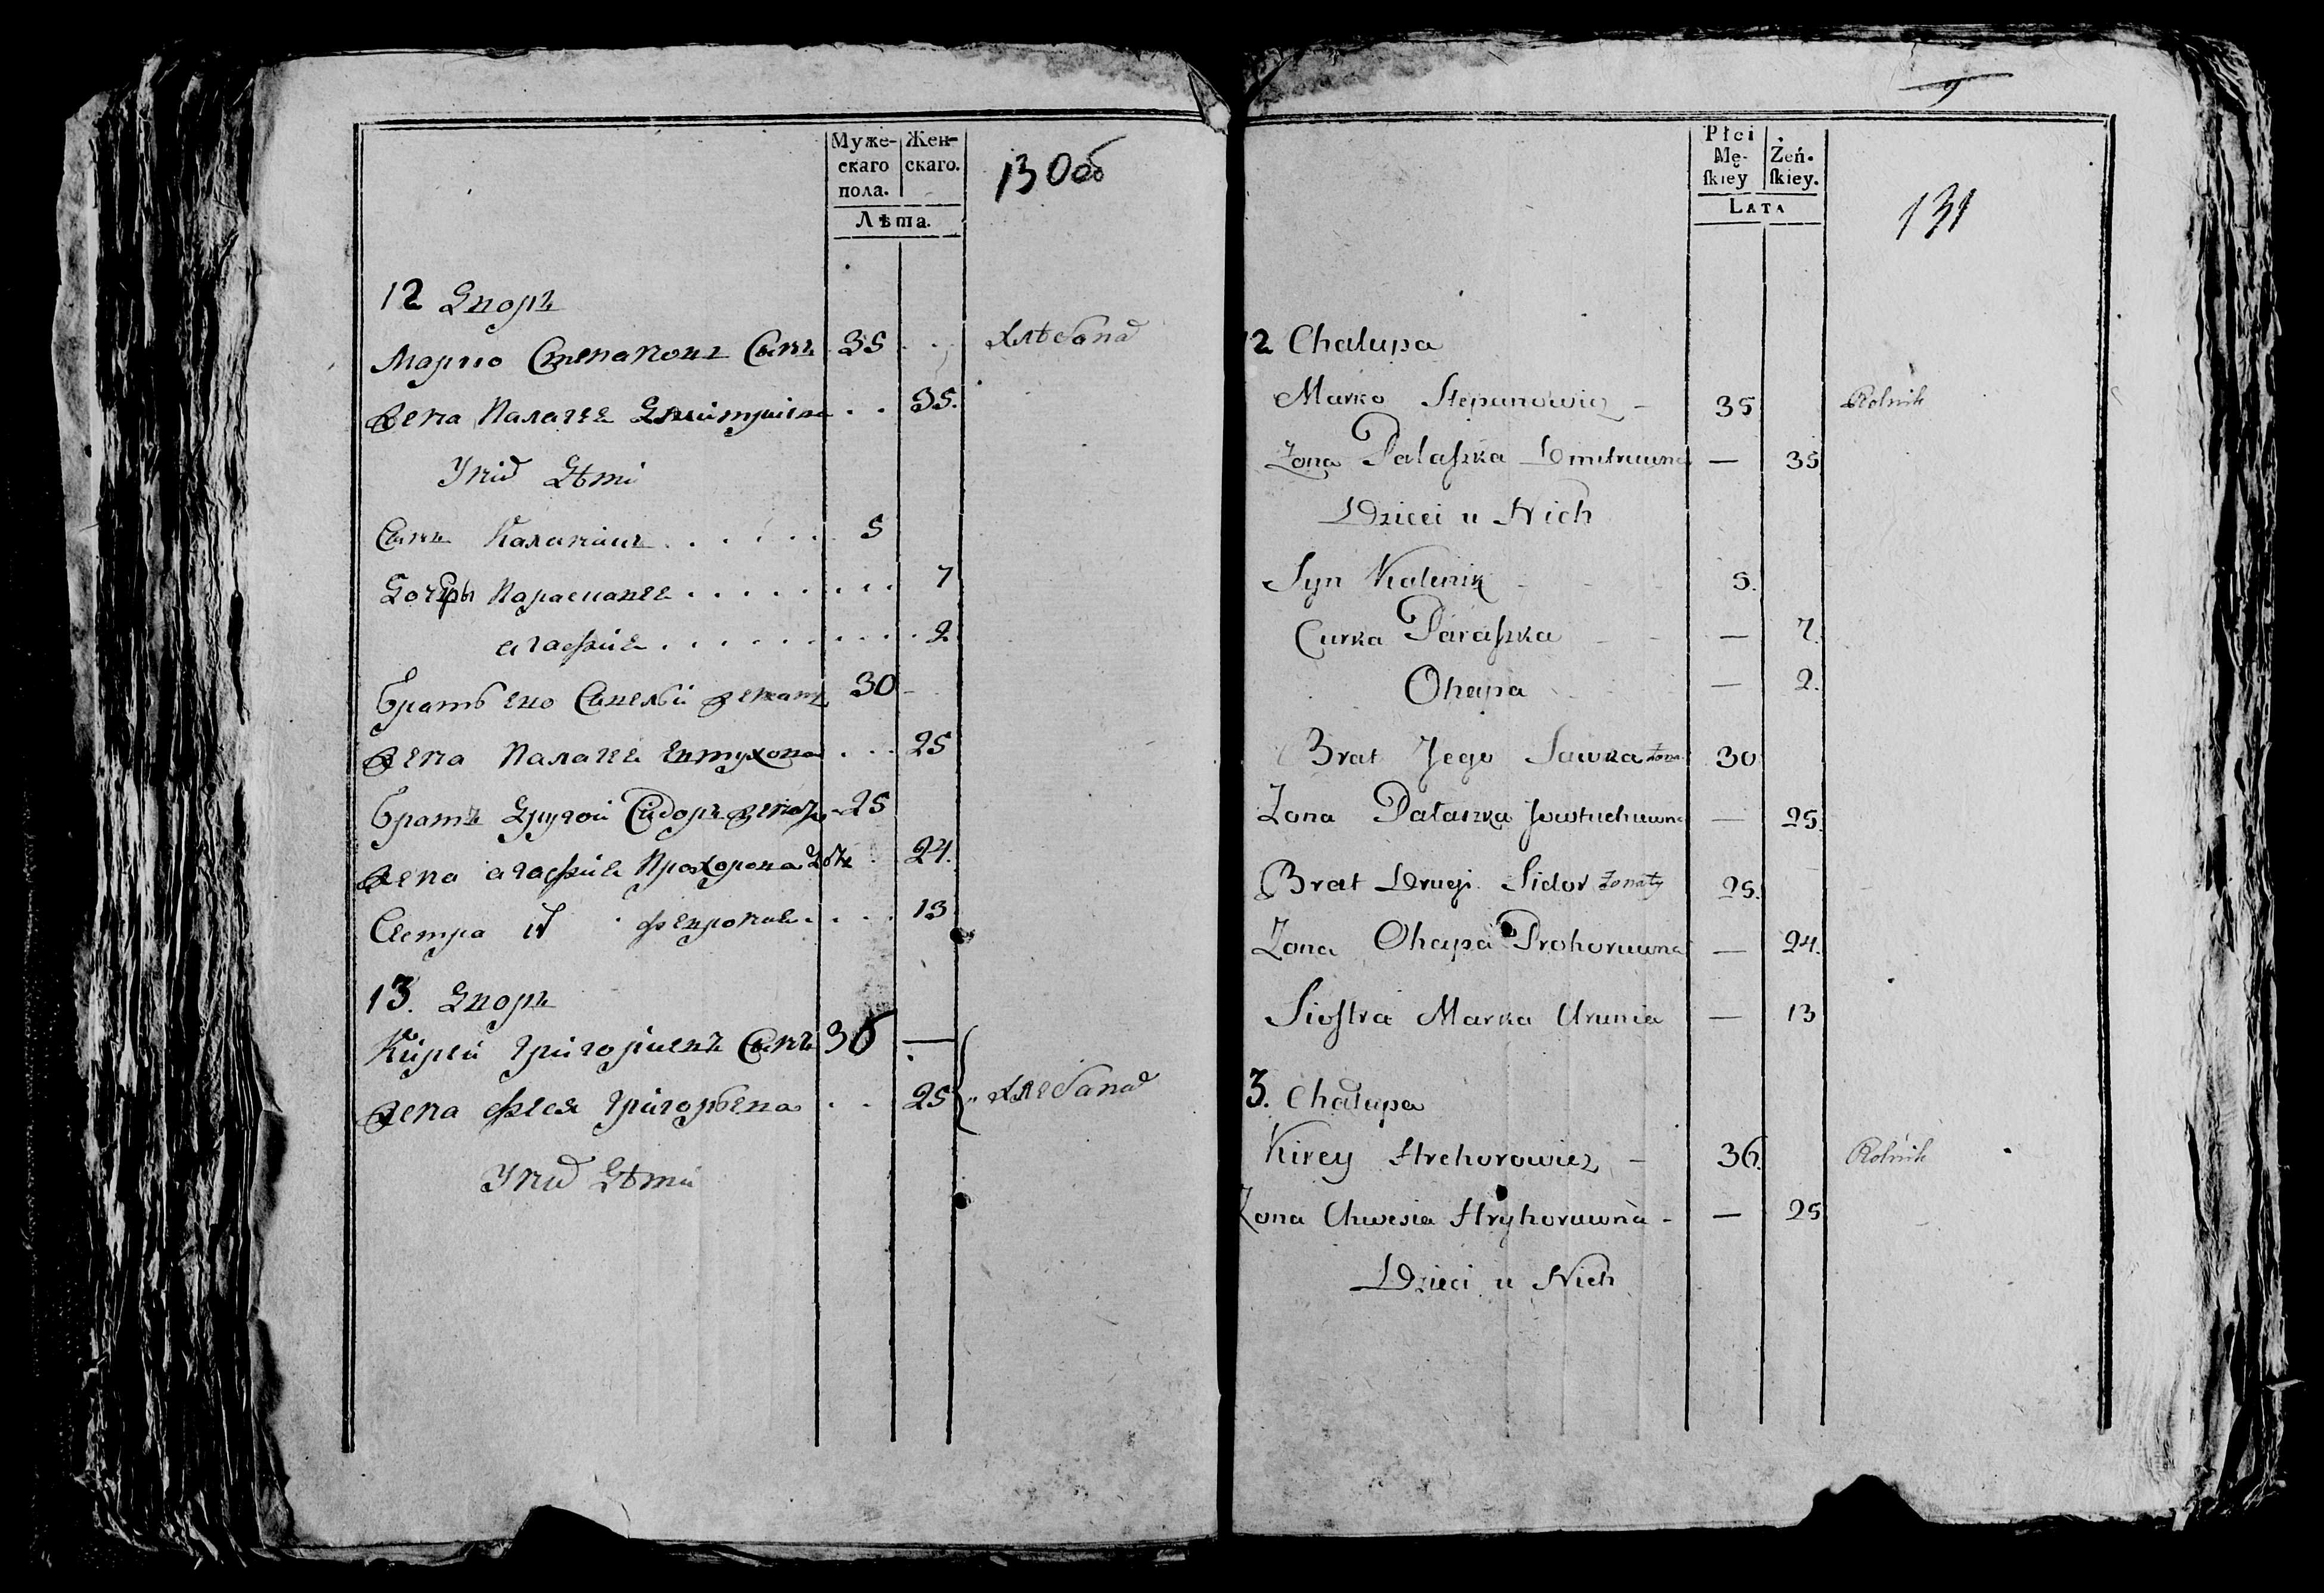 Муже-
скаго
пола.
Жен-
скаго.
Лѣта.
130об
12 Дворъ
Марко Степановъ Сынъ 35
хлѣбопа
Жена Палагея Дмитриева 35.
У нихъ Дѣти
Сынъ Каланикъ 5
Дочери Парасковея 7
агафия 2
братъ ево Савелѣй женатъ 30
Жена Палагея Евтухова 25
братъ Другой Сидоръ женатъ 25
Жена агафия Прохорова 24.
Сестра их феврония 13
13. Дворъ
Кирей Григориевъ Сынъ 36
Жена Феся Григорьева 25
хлебопа
У них Дѣти
Płci
Mę-
skiey
Żeń-
skiey.
LATA
9
131
12 Chałupa
Marko Stepanowicz 35
Rolnik
Zona Palaszka Dmitruwna 35
Dzieci u Nich
Syn Kalenik 5.
Curka Paraszka 7.
Ohapa 2.
Brat Jego Sawka zona 30
Zona Palaszka Jowtuchuwna 25.
Brat Drugi Sidor Zonaty 25.
Zona Ohapa Prohoruwna 24.
Siostra Marka Urunia 13
3. Chałupa
Kirey Hrehorowicz 36.
Rolnik
Zona Chwesia Hryhoruwna 25
Dzieci u Nich